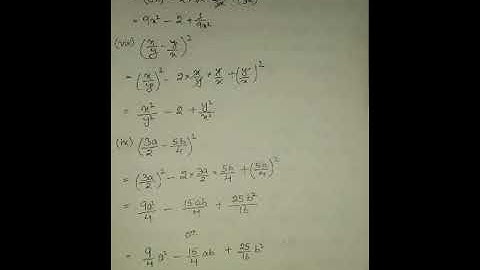 = 9x² - 2 + 1/9x²
(viii) (x/y - y/x)²
= (x/y)² - 2 × x/y × y/x + (y/x)²
= x²/y² - 2 + y²/x²
(ix) (3a/2 - 5b/4)²
= (3a/2)² - 2 × 3a/2 × 5b/4 + (5b/4)²
= 9a²/4 - 15ab/4 + 25b²/16
or
= 9/4 a² - 15/4 ab + 25/16 b²